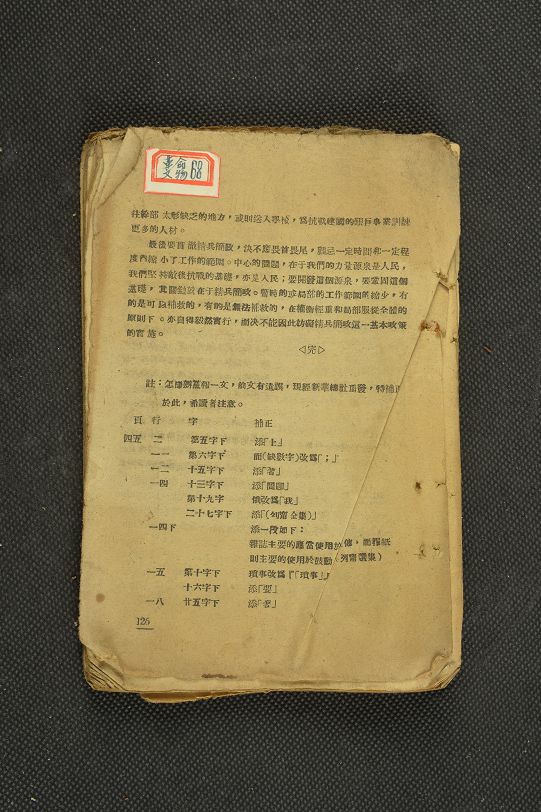 革命
文物 68
往幹部太形缺乏的地方,或則送入學校,爲抗戰建國的照戶事業訓練
更多的人材。
最後要貫徹精兵簡政,決不應畏首畏尾,顧忌一定時間和一定程
度內縮小了工作的範圍。中心的問題,在于我們的力量源泉是人民,
我們堅持敵後抗戰的基礎,亦是人民;要開發這個源泉,要鞏固這個
基礎,其關鍵就在于精兵簡政。暫時的或局部的工作範圍的縮少,有
的是可以補救的,有的是無法補救的,在權衡輕重和局部服從全體的
原則下。亦自得毅然實行,而決不能因此妨礙精兵簡政這一基本政策
的實施。
◁完▷
註:怎樣辦黨報一文,前文有遺誤,現經新華總社更發,特補正
於此,希讀者注意。
頁 行 字 補正
四五 二 第五字下 添「上」
一一 第六字下 面(缺數字)改爲「;」
一二 十五字下 添「著」
一四 十三字下 添「問題」
第十九字 俄改爲「我」
二十七字下 添「(列甯全集)」
一四下 添一段如下:
雜誌主要的應當使用於宣傳,而報紙
則主要的使用於鼓動(列甯選集)
一五 第十字下 瑣事改爲『「瑣事」』
十六字下 添「要」
一八 廿五字下 添「著」
126